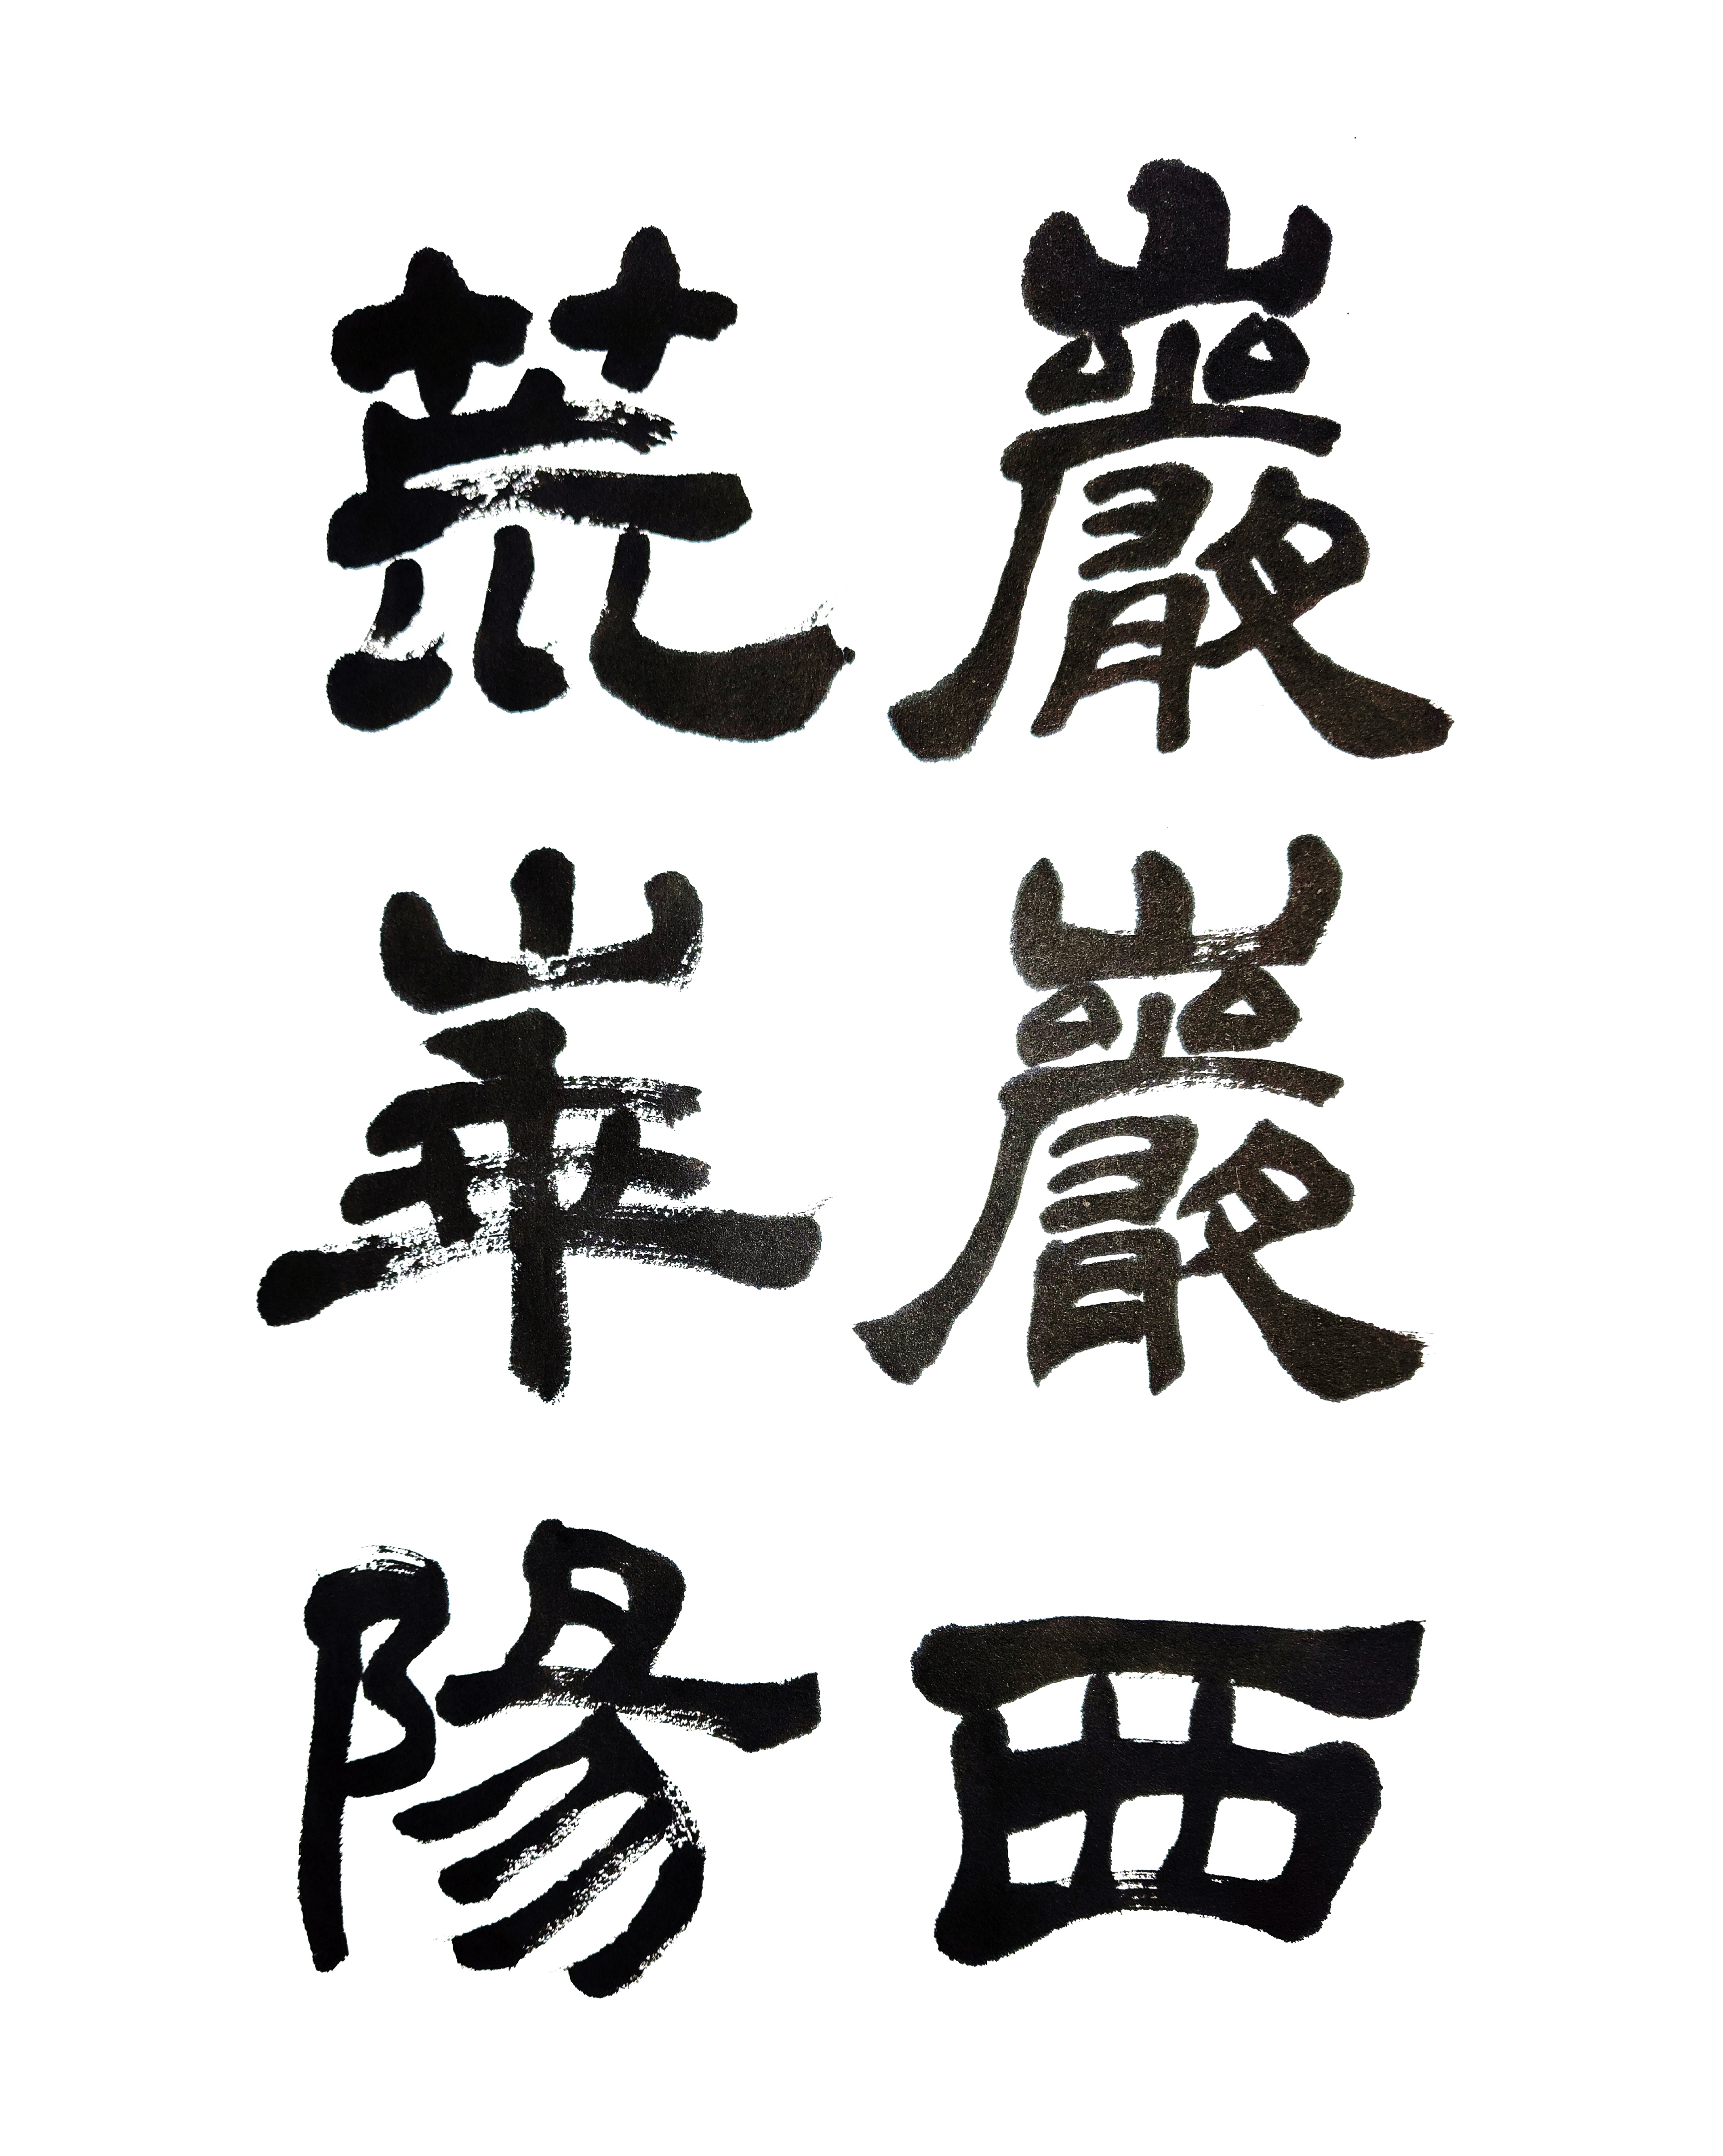 巖巖西
荒崋陽